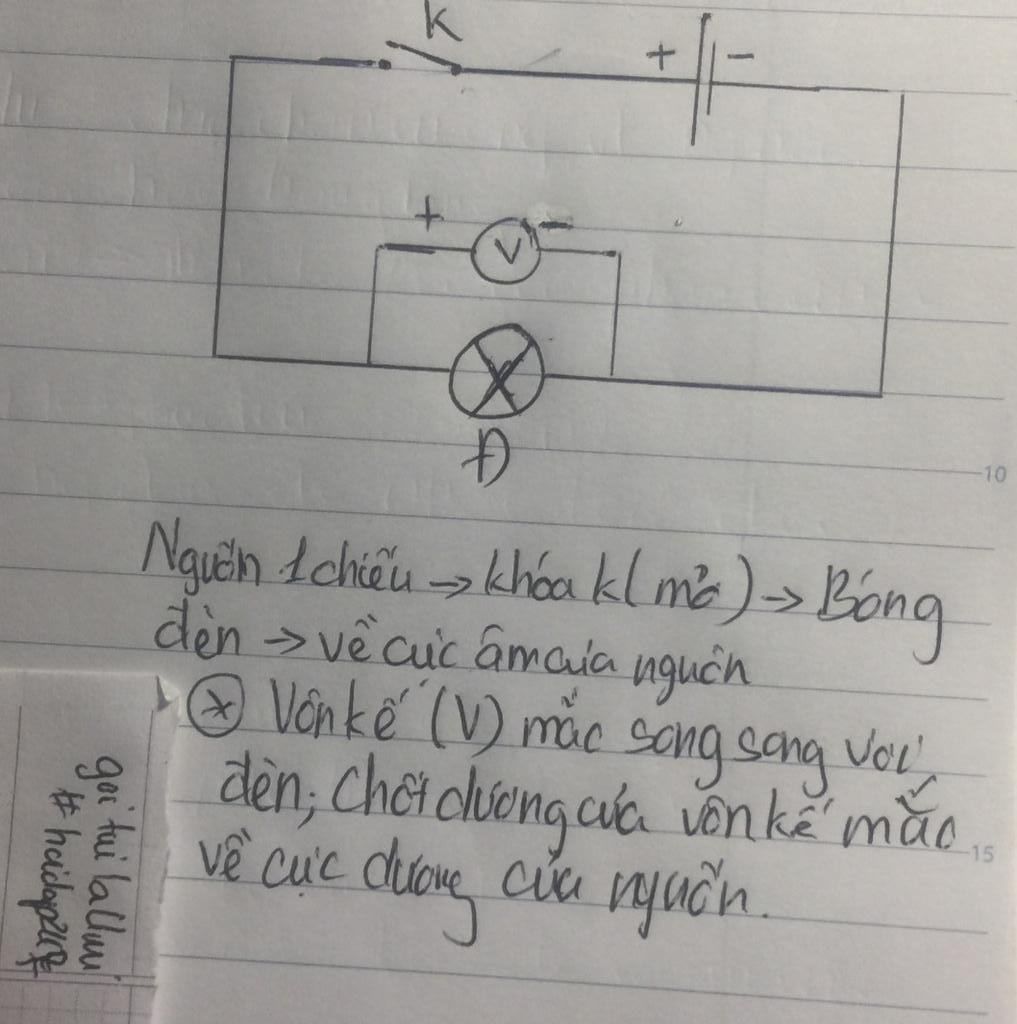 K
+ -
+ -
V
Đ
10
Nguồn 1 chiều → khóa k (mở) → Bóng
đèn → về cực âm của nguồn
* Vôn kế (V) mắc song song với
đèn; Chốt dương của vôn kế mắc
15
về cực dương của nguồn.
gọi tui là